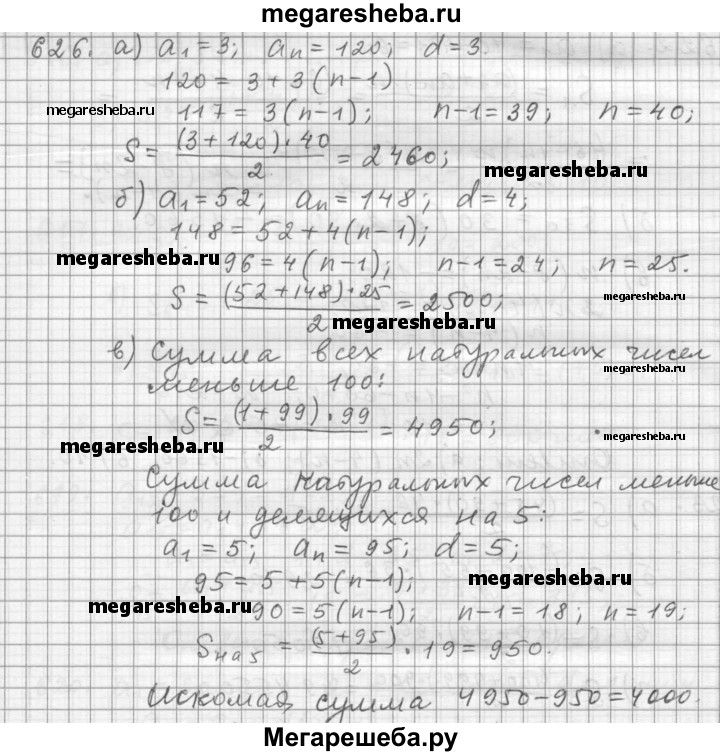 megaresheba.ru
626. а) a₁ = 3; aₙ = 120; d = 3.
120 = 3 + 3(n-1)
megaresheba.ru 117 = 3(n-1); n-1 = 39; n = 40;
S = (3+120)·40 / 2 = 2460; megaresheba.ru
б) a₁ = 52; aₙ = 148; d = 4;
148 = 52 + 4(n-1);
megaresheba.ru 96 = 4(n-1); n-1 = 24; n = 25.
S = (52+148)·25 / 2 = 2500; megaresheba.ru
megaresheba.ru
в) Сумма всех натуральных чисел
меньше 100:
S = (1+99)·99 / 2 = 4950; megaresheba.ru
megaresheba.ru
Сумма натуральных чисел меньше
100 и делящихся на 5:
a₁ = 5; aₙ = 95; d = 5;
95 = 5 + 5(n-1); megaresheba.ru
megaresheba.ru 90 = 5(n-1); n-1 = 18; n = 19;
Sна 5 = (5+95) / 2 · 19 = 950.
Искомая сумма 4950-950 = 4000.
Мегарешеба.ру